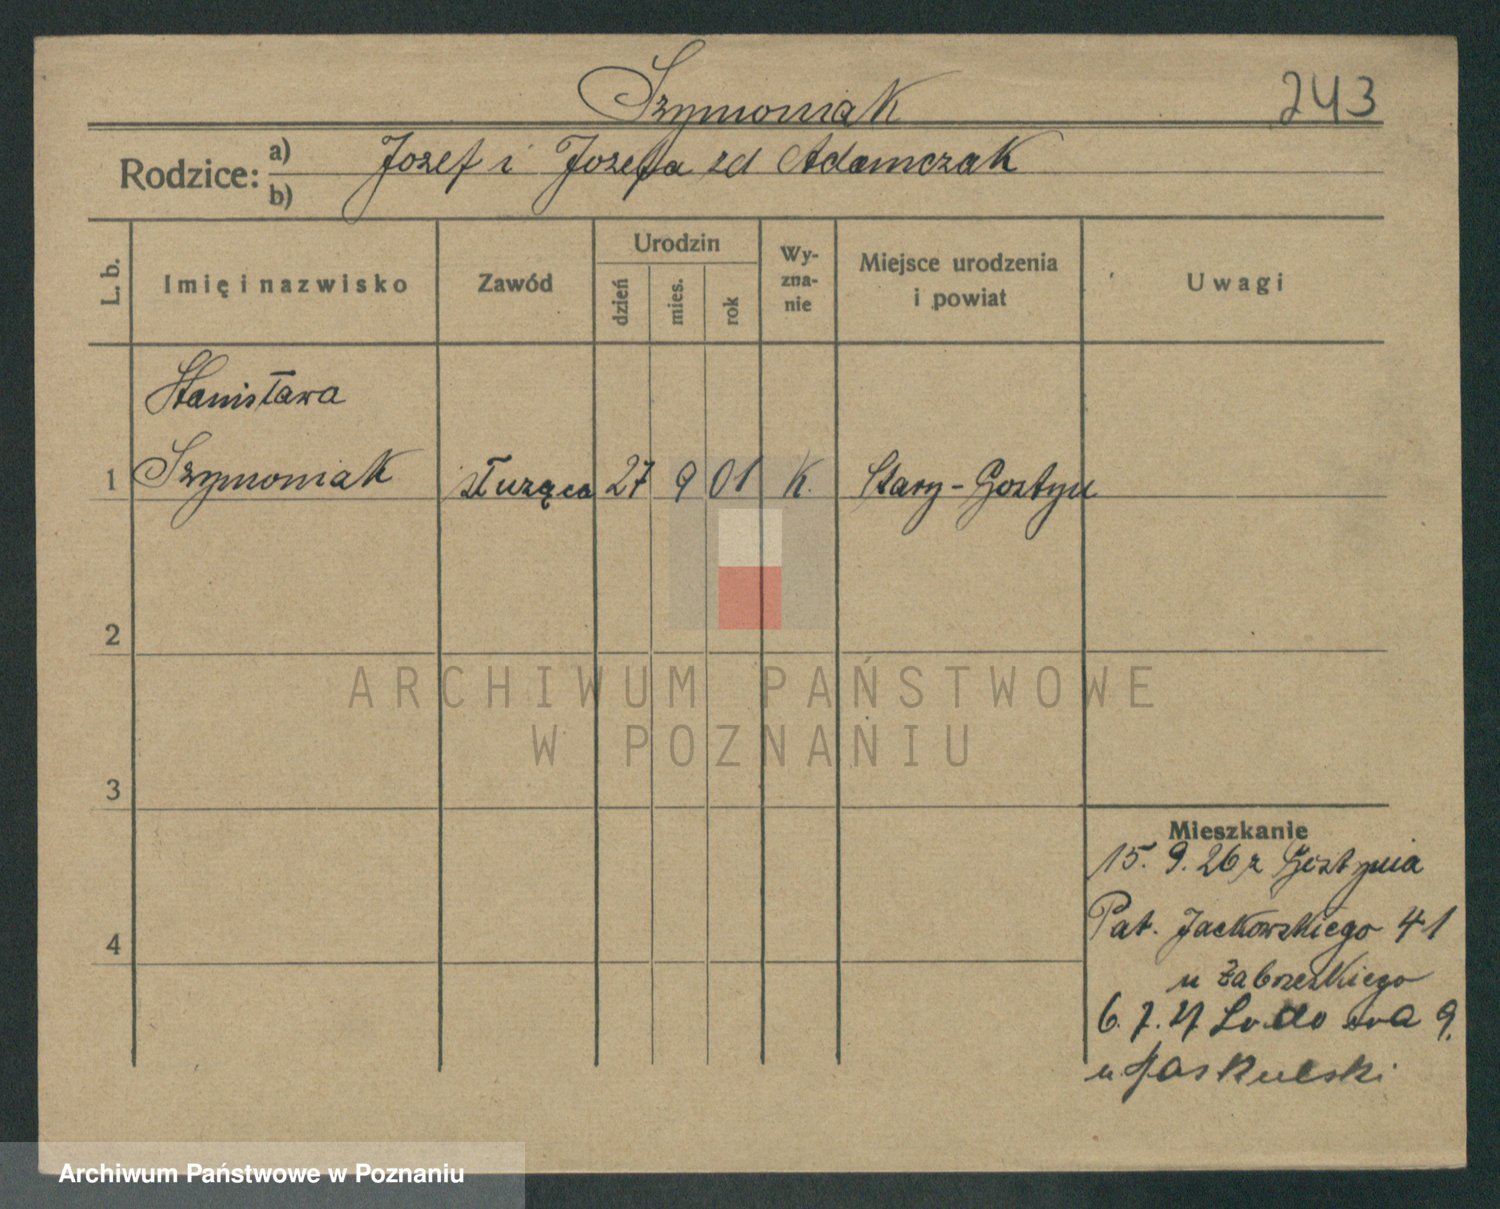 Szymoniak
243
Rodzice: a) Jozef i Jozefa zd Adamczak
b)
L. b.
Imię i nazwisko
Zawód
Urodzin
dzień
mies.
rok
Wy-
zna-
nie
Miejsce urodzenia
i powiat
Uwagi
Stanisława
1 Szymoniak służąca 27 9 01 K. Stary-Gostyń
2
3
4
ARCHIWUM PAŃSTWOWE
W POZNANIU
Mieszkanie
15. 9. 26 z Gostynia
Pat. Jackowskiego 41
u Zabrzeskiego
6. 7. 27 9.
u Jaskulski
Archiwum Państwowe w Poznaniu